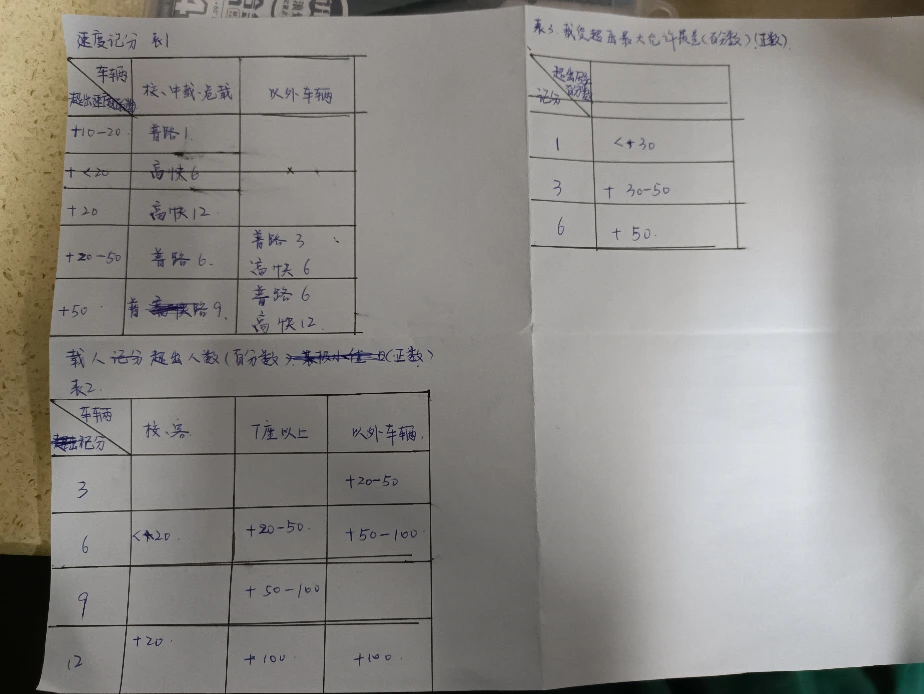 速度记分 表1
车辆
校、中载、危载
以外车辆
记分
+10-20
普路1
+<20
高快6
×
+20
高快12
+20-50
普路6
普路3
高快6
+50
普
路9
普路6
高快12
载人记分 超出人数(百分数)
(正数)
表2
车辆
记分
校、客
7座以上
以外车辆
3
+20-50
6
<+20
+20-50
+50-100
9
+50-100
12
+20
+100
+100
表3 载货超出最大允许质量(百分数)(正数)
超出
百分数
记分
1
<+30
3
+30-50
6
+50